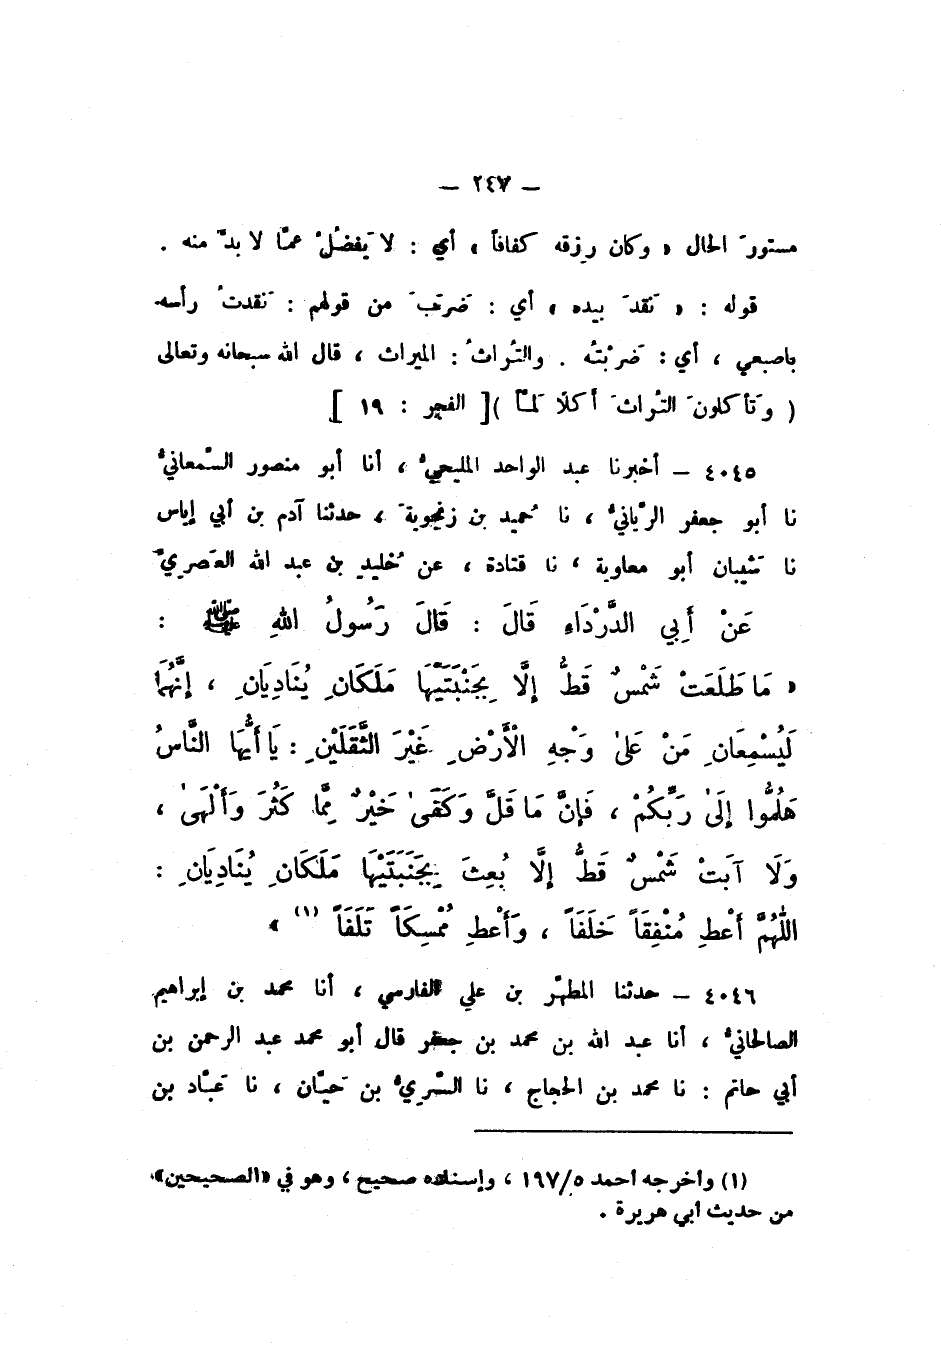 — ٢٤٧ —
مستورَ الحال « وكان رزقه كفافاً » أي : لا يَفضُلُ عمّا لا بدَّ منه .
قوله : « نَقدَ بيده » أي : ضَربَ من قولهم : نَقدتُ رأسه
باصبعي ، أي : ضَربْتُه . والتُراثُ : الميراث ، قال الله سبحانه وتعالى
( وتَأكلونَ التُراثَ أكلًا لَمّاً ) [ الفجر : ١٩ ]
٤٠٤٥ – أخبرنا عبد الواحد المليحيُّ ، أنا أبو منصور السَّمعانيُّ
نا أبو جعفر الرَّيانيُّ ، نا حُميد بن زنجويةَ ، حدثنا آدم بن أبي إياس
نا شَيبان أبو معاوية ، نا قتادة ، عن خُليدِ بن عبد الله العَصريِّ
عَنْ أَبِي الدَّرْدَاءِ قَالَ : قَالَ رَسُولُ اللهِ ﷺ :
« مَا طَلَعَتْ شَمْسٌ قَطُّ إِلَّا بِجَنْبَتَيْهَا مَلَكَانِ يُنَادِيَانِ ، إِنَّهُمَا
لَيُسْمِعَانِ مَنْ عَلَىٰ وَجْهِ الْأَرْضِ غَيْرَ الثَّقَلَيْنِ : يَا أَيُّهَا النَّاسُ
هَلُمُّوا إِلَىٰ رَبِّكُمْ ، فَإِنَّ مَا قَلَّ وَكَفَىٰ خَيْرٌ مِمَّا كَثُرَ وَأَلْهَىٰ ،
وَلَا آبَتْ شَمْسٌ قَطُّ إِلَّا بُعِثَ بِجَنَبَتَيْهَا مَلَكَانِ يُنَادِيَانِ :
اللَّهُمَّ أَعْطِ مُنْفِقَاً خَلَفَاً ، وَأَعْطِ مُمْسِكَاً تَلَفَاً (١) »
٤٠٤٦ – حدثنا المطهّر بن علي الفارسي ، أنا محمد بن إبراهيم
الصالحانيُّ ، أنا عبد الله بن محمد بن جعفر قال أبو محمد عبد الرحمن بن
أبي حاتم : نا محمد بن الحجاج ، نا السَّريُّ بن حَيّان ، نا عَبّاد بن
(١) وأخرجه أحمد ١٩٧/٥ ، وإسناده صحيح ، وهو في «الصحيحين»
من حديث أبي هريرة .